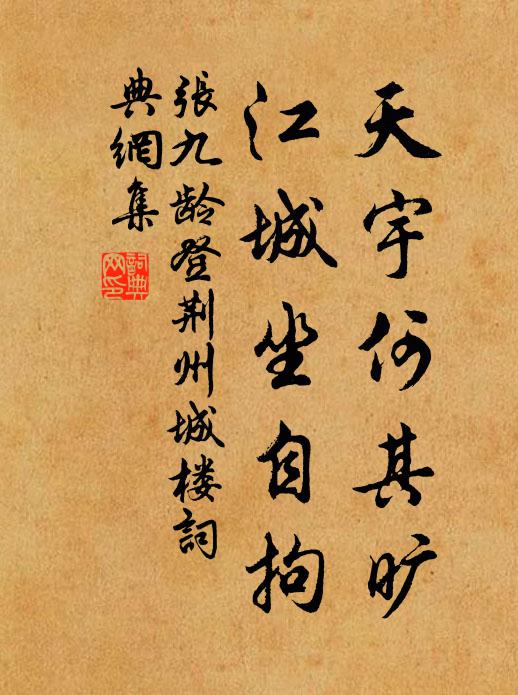 天宇何其旷
江城坐自拘
張九龄登荆州城楼詞
典網集
詞典
网印